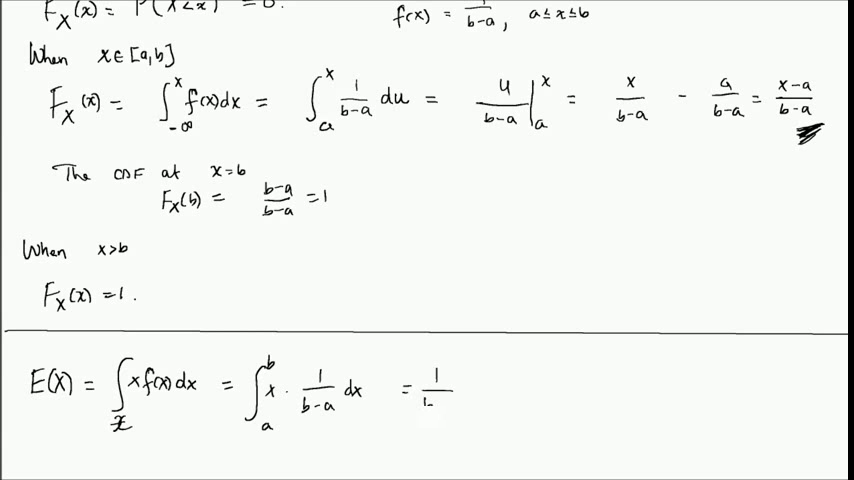 F_X(x) = P(X<x) = 0. f(x) = 1/(b-a), a≤x≤b
When x∈[a,b]
F_X(x) = ∫_{-∞}^{x} f(x)dx = ∫_{a}^{x} 1/(b-a) du = u/(b-a) |_{a}^{x} = x/(b-a) - a/(b-a) = (x-a)/(b-a)
The CDF at x=b
F_X(b) = (b-a)/(b-a) = 1
When x>b
F_X(x) = 1.
E(X) = ∫_{x} x f(x) dx = ∫_{a}^{b} x · 1/(b-a) dx = 1/